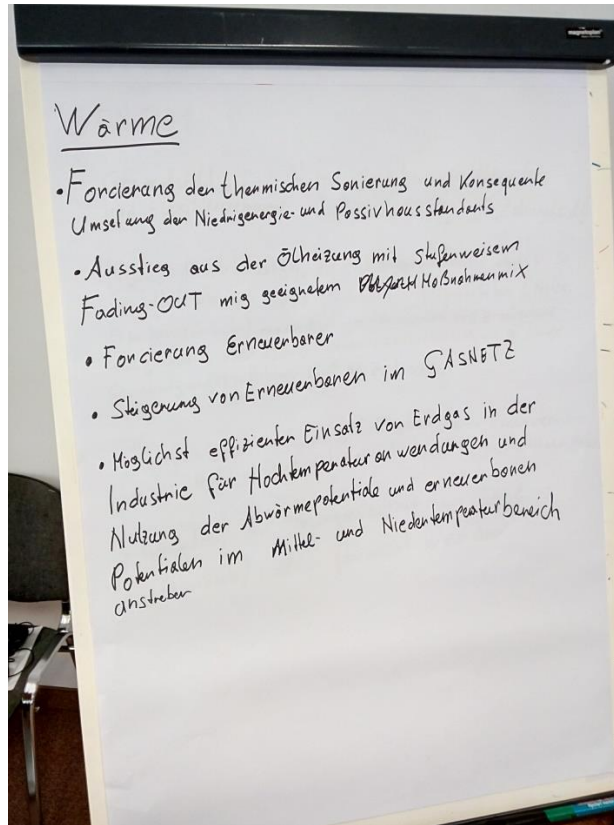 magnetoplan
Wärme
• Forcierung der thermischen Sanierung und Konsequente
Umsetzung der Niedrigenergie- und Passivhausstandards
• Ausstieg aus der Ölheizung mit stufenweisem
Fading-OUT mig geeignetem Maßnahmenmix
• Forcierung Erneuerbarer
• Steigerung von Erneuerbaren im GASNETZ
• Möglichst effizienten Einsatz von Erdgas in der
Industrie für Hochtemperaturanwendungen und
Nutzung der Abwärmepotentiale und erneuerbaren
Potentialen im Mittel- und Niedertemperaturbereich
anstreben